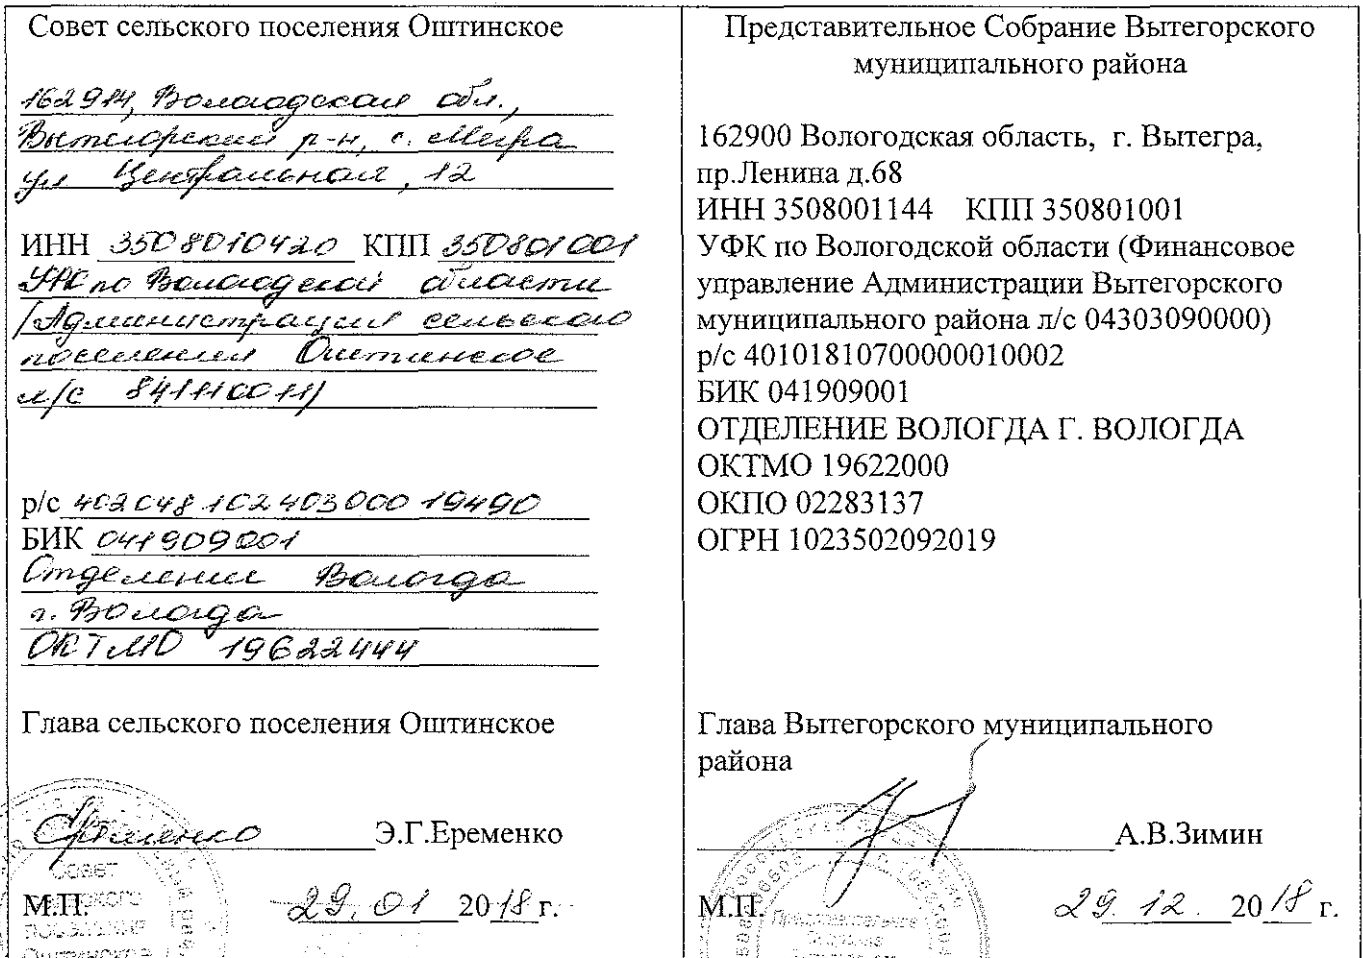 Совет сельского поселения Оштинское
162914, Вологодская обл.,
Вытегорский р-н, с. Мегра
ул Центральная, 12
ИНН 3508010420 КПП 350801001
УФК по Вологодской области
(Администрация сельского
поселения Оштинское
л/с 841110011)
р/с 40204810240300019490
БИК 041909001
Отделение Вологда
г. Вологда
ОКТМО 19622444
Глава сельского поселения Оштинское
Э.Г.Еременко
Совет
М.П. 29.01 2018 г.
поселения
Оштинское
Представительное Собрание Вытегорского
муниципального района
162900 Вологодская область, г. Вытегра,
пр.Ленина д.68
ИНН 3508001144 КПП 350801001
УФК по Вологодской области (Финансовое
управление Администрации Вытегорского
муниципального района л/с 04303090000)
р/с 40101810700000010002
БИК 041909001
ОТДЕЛЕНИЕ ВОЛОГДА Г. ВОЛОГДА
ОКТМО 19622000
ОКПО 02283137
ОГРН 1023502092019
Глава Вытегорского муниципального
района
А.В.Зимин
М.П. 29.12. 2018 г.
Представительное
Собрание